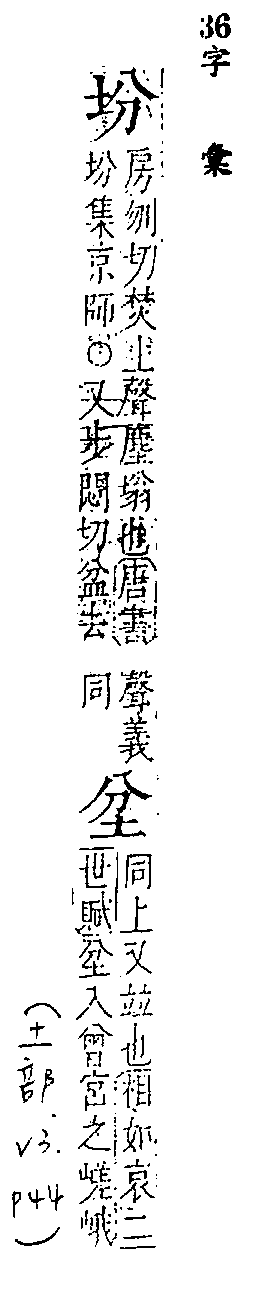 36
字彙
坋
房刎切焚上聲塵塕也唐書
坋集京師○又步悶切盆去
聲義
同
坌
同上又竝也相如哀二
世賦坌入曾宮之嵯峨
(土部
v3.
p44)